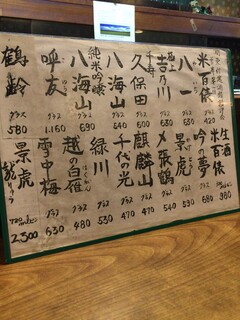 米百俵
八一
グラス
極上
吉乃川
グラス
千寿
久保田
グラス
八海山
グラス
540
純米吟醸
八海山
グラス
690
呼友
グラス
1,160
鶴齢
グラス
580
生酒
米百俵
グラス
980
吟の夢
グラス
680
景虎
グラス
590
〆張鶴
グラス
540
麒麟山
グラス
470
千代の光
グラス
470
緑川
グラス
530
越の白雁
グラス
480
雪中梅
グラス
630
景虎
720ml
2,300